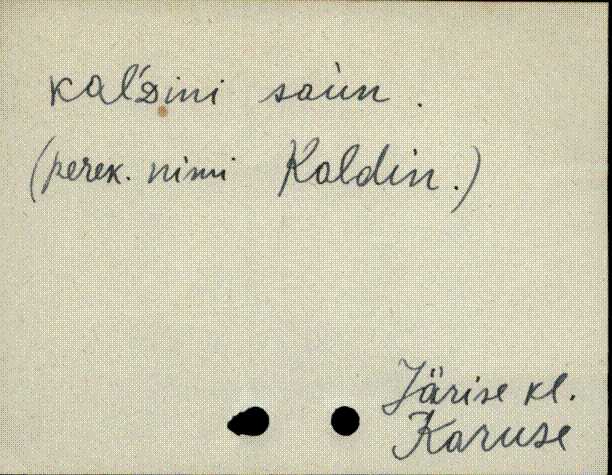 kal'ᴅini saùn.
(perek. nimi Kaldin.)
Järise kl.
Karuse